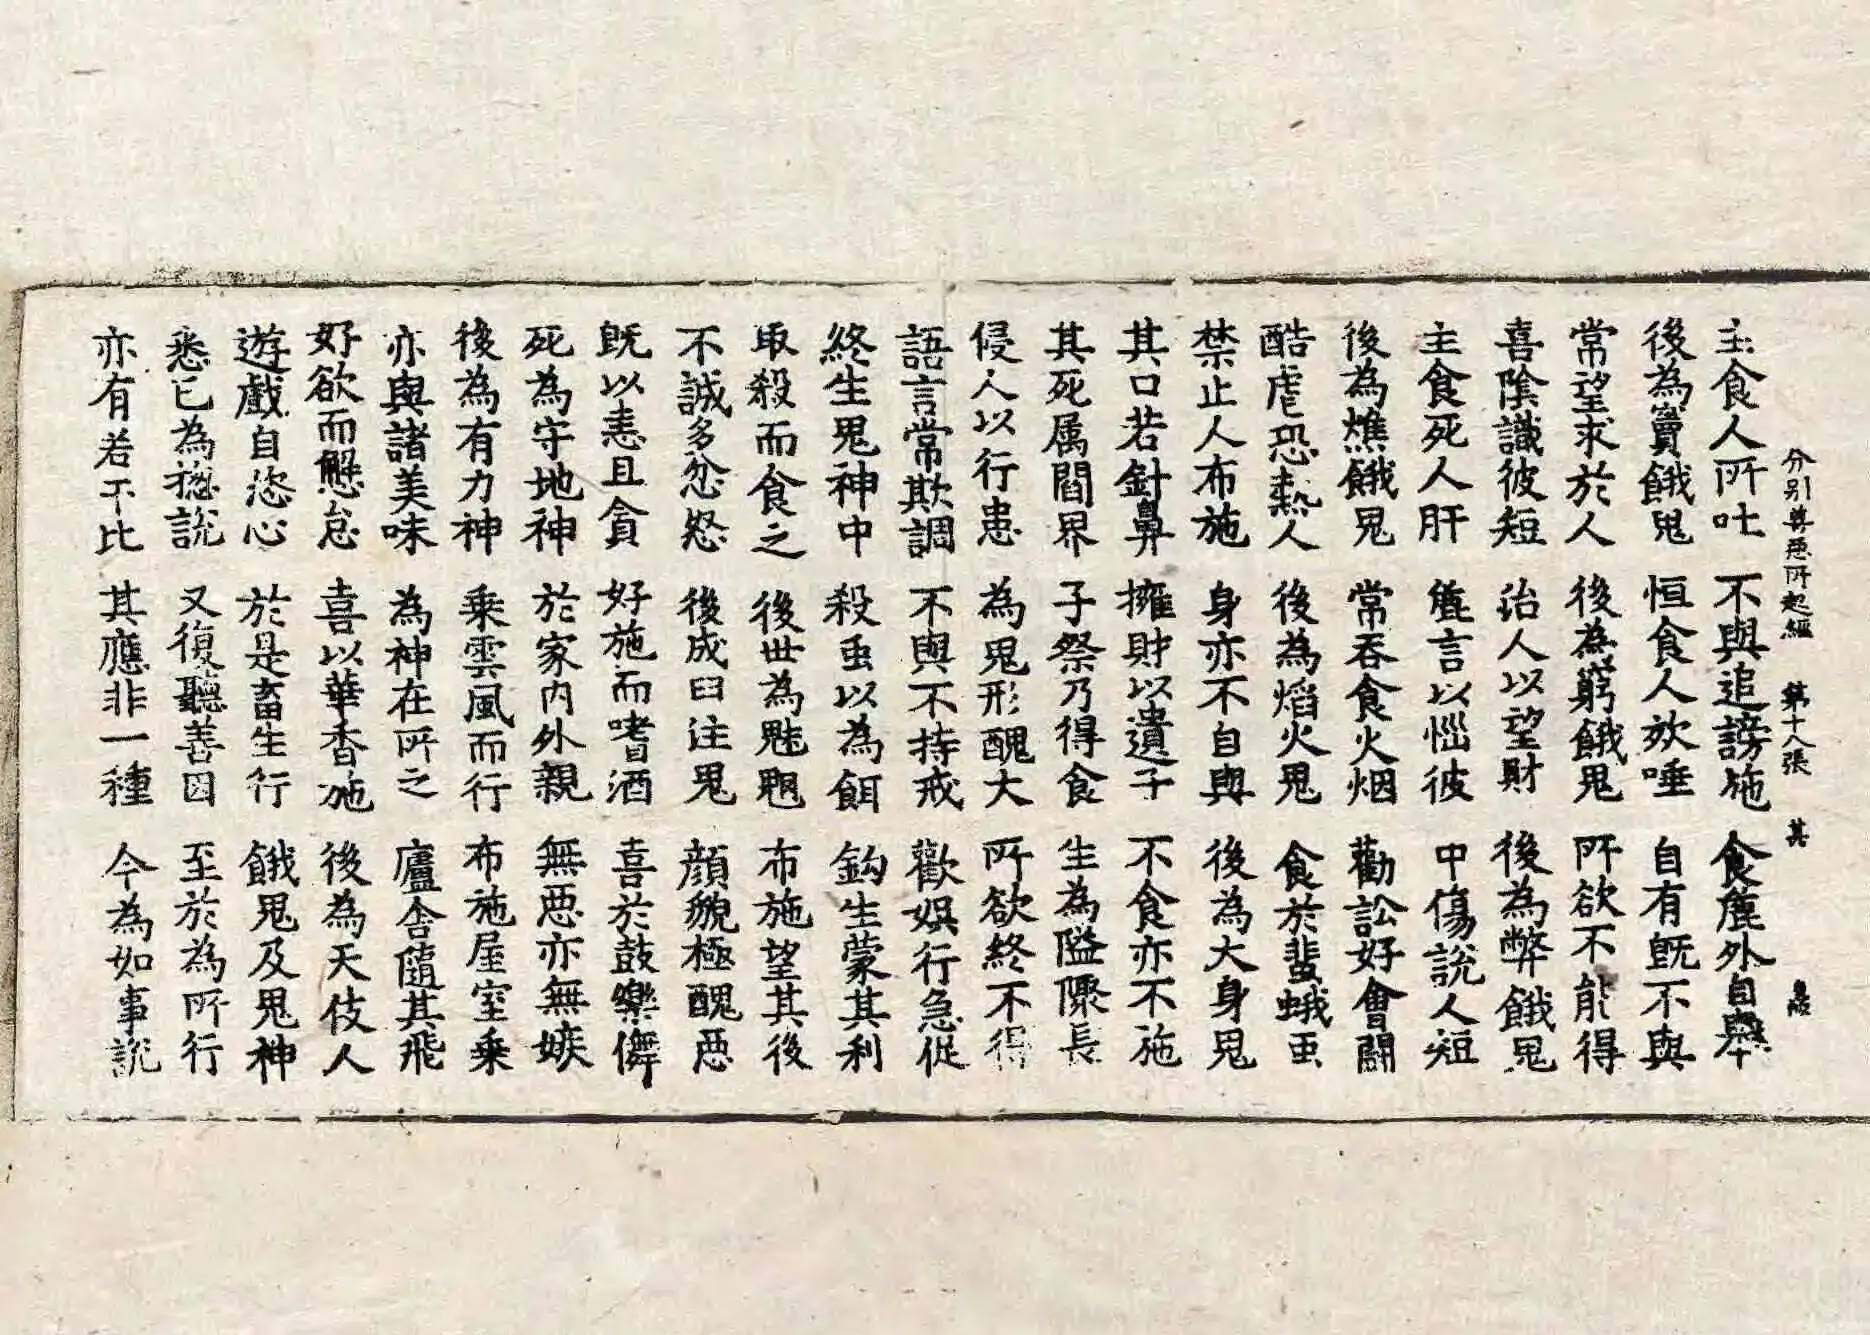 分別善惡所起經 第十八張 其
主食人所吐 不與追謗施 食麁外自舉
後為竇餓鬼 恒食人放唾 自有旣不與
常望求於人 後為窮餓鬼 所欲不能得
喜陰識彼短 治人以望財 後為弊餓鬼
主食死人肝 麁言以惱彼 中傷說人短
後為燋餓鬼 常吞食火烟 勸訟好會鬪
酷虐恐熱人 後為焰火鬼 食於蜚蛾虫
禁止人布施 身亦不自與 後為大身鬼
其口若針鼻 擁財以遺子 不食亦不施
其死属閻界 子祭乃得食 生為隘隟長
侵人以行恚 為鬼形醜大 所欲終不得
語言常欺調 不與不持戒 歡娛行急促
終生鬼神中 殺虫以為餌 鈎生蒙其利
取殺而食之 後世為魅魍 布施望其後
不誠多忿怒 後成曰注鬼 顔貌極醜惡
旣以恚且貪 好施而嗜酒 喜於鼓樂儛
死為守地神 於家內外親 無惡亦無嫉
後為有力神 乘雲風而行 布施屋室乘
亦與諸美味 為神在所之 廬舍隨其飛
好欲而懈怠 喜以華香施 後為天伎人
遊戲自恣心 於是畜生行 餓鬼及鬼神
悉已為揔說 又復聽善因 至於為所行
亦有若干比 其應非一種 今為如事說